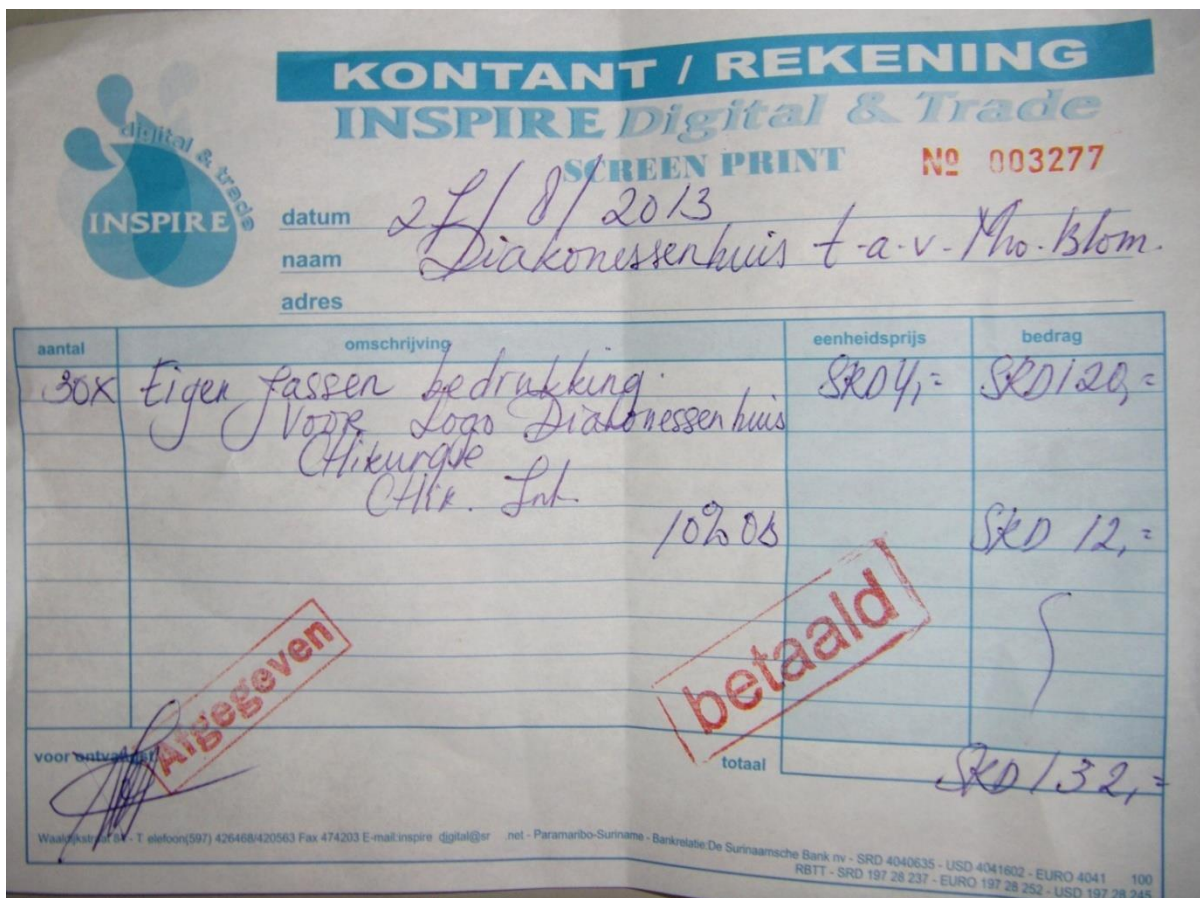 KONTANT / REKENING
INSPIRE Digital & Trade
SCREEN PRINT
Nº 003277
digital & trade
INSPIRE
datum 27/8/2013
naam Diakonessenhuis t-a-v- Mw. Blom.
adres
aantal omschrijving eenheidsprijs bedrag
30x Eigen Tassen bedrukking. SRD4,= SRD120,=
Voor Logo Diakonessenhuis
CHirurgie
CHir. Int.
10% OB SRD 12,=
Afgegeven
betaald
voor ontvangst
totaal SRD 132,=
Waaldijkstraat 84 - T elefoon(597) 426468/420563 Fax 474203 E-mail:inspire digital@sr net - Paramaribo-Suriname - Bankrelatie:De Surinaamsche Bank nv - SRD 4040635 - USD 4041602 - EURO 4041 100
RBTT - SRD 197 28 237 - EURO 197 28 252 - USD 197 28 245